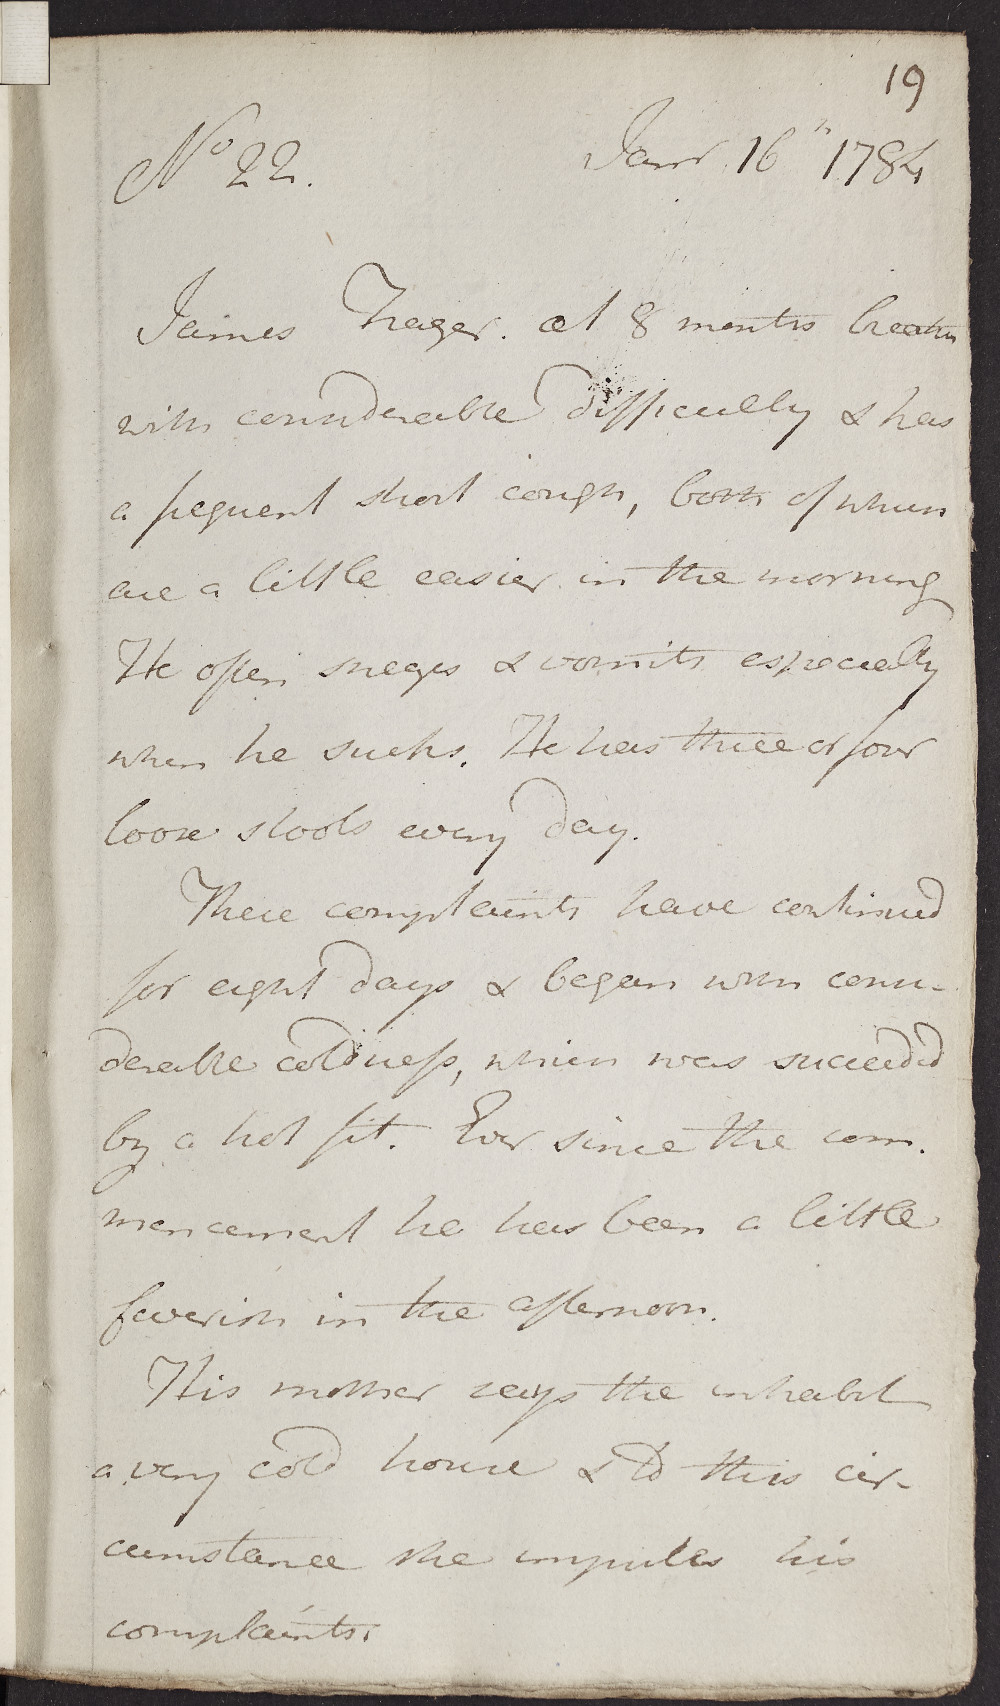 19
No 22. Janr 16th 1784
James Thager. æt 8 months breaths
with considerable difficulty & has
a frequent short cough, both of which
are a little easier in the morning
He often sneezes & vomits especially
when he sucks. He has three or four
loose stools every day.
These complaints have continued
for eight days & began with consi-
derable coldness, which was succeeded
by a hot fit. Ever since the com-
mencement he has been a little
feverish in the afternoon.
His mother says the inhabit
a very cold house & to this cir-
cumstance she imputes his
complaints.